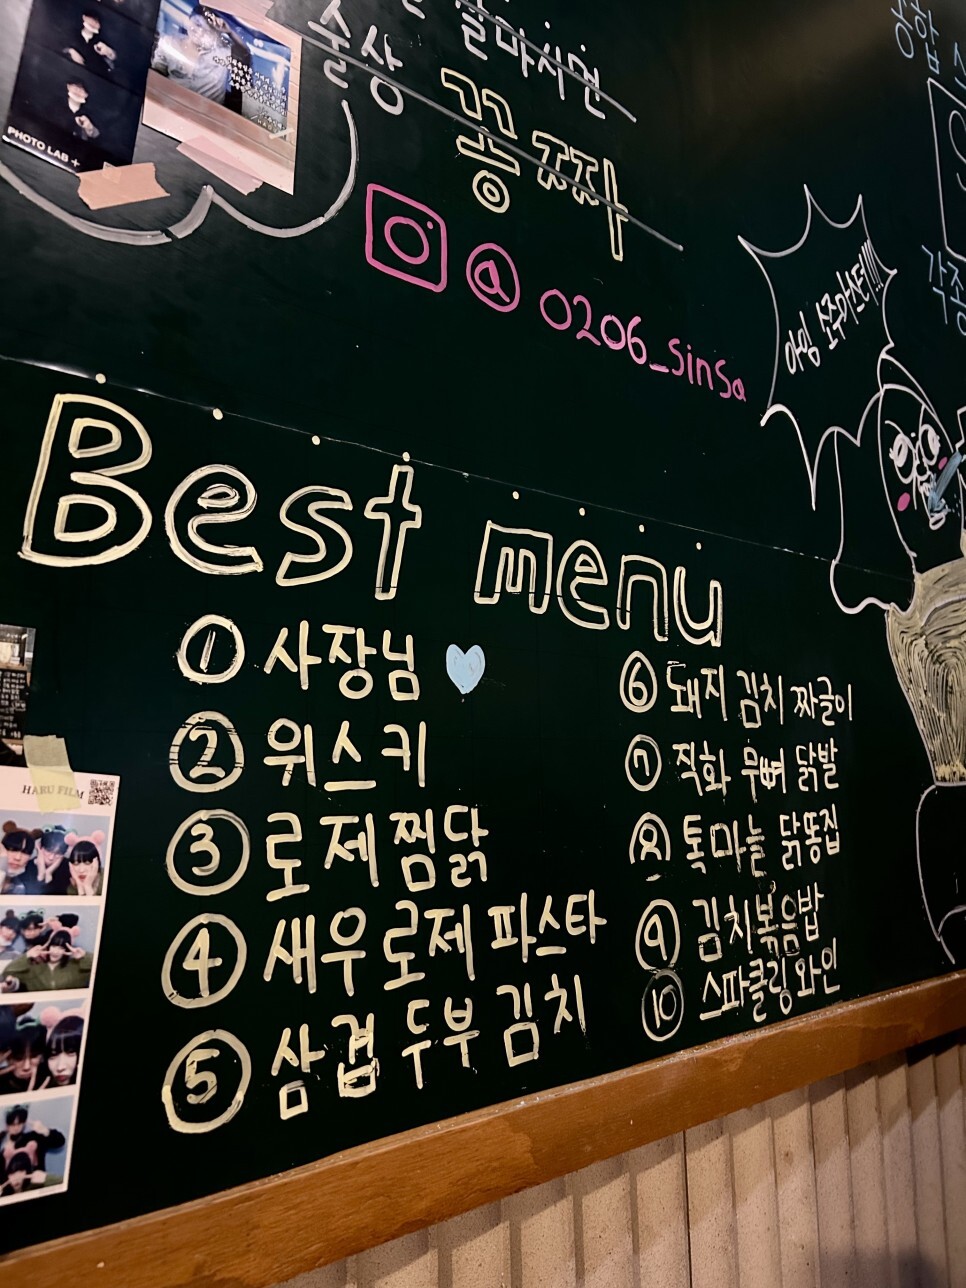 술상
꽁짜
PHOTO LAB +
@0206_sinsa
아임 소주마스터!!!!
Best menu
① 사장님
② 위스키
③ 로제 찜닭
④ 새우 로제 파스타
⑤ 삼겹 두부 김치
⑥ 돼지 김치 짜글이
⑦ 직화 무뼈 닭발
⑧ 톡마늘 닭똥집
⑨ 김치볶음밥
⑩ 스파클링 와인
HARU FILM